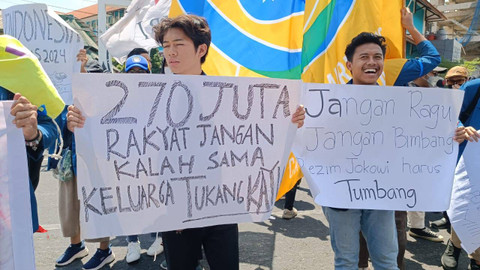 INDONESIA
S 2024
270 JUTA
RAKYAT JANGAN
KALAH SAMA
KELUARGA TUKANG KAYU
Jangan Ragu
Jangan Bimbang
Rezim Jokowi harus
Tumbang